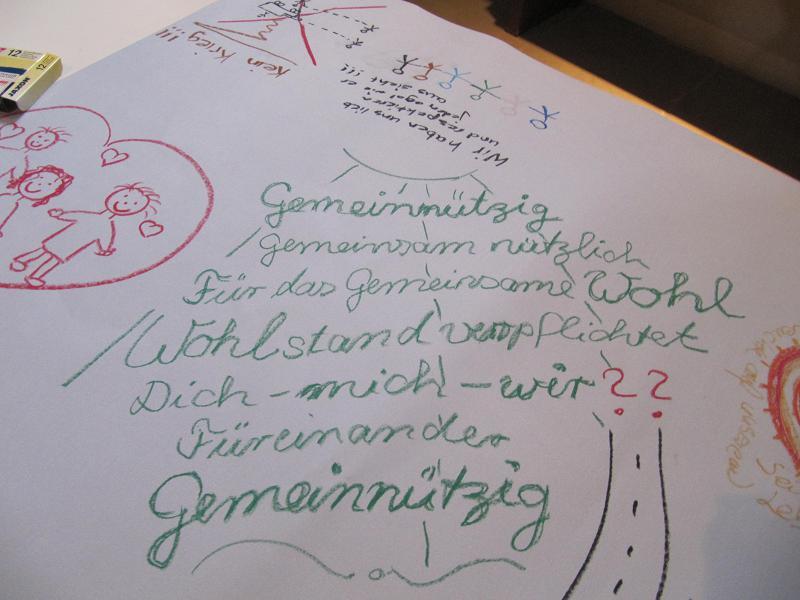 kein Krieg !!!
Wir haben uns lieb
und respektieren
jeden egal wie er
aus sieht !!!
Gemeinnützig
gemeinsam nützlich
Für das Gemeinsame Wohl
Wohlstand verpflichtet
Dich - mich - wir ??
Füreinander
Gemeinnützig
12
12